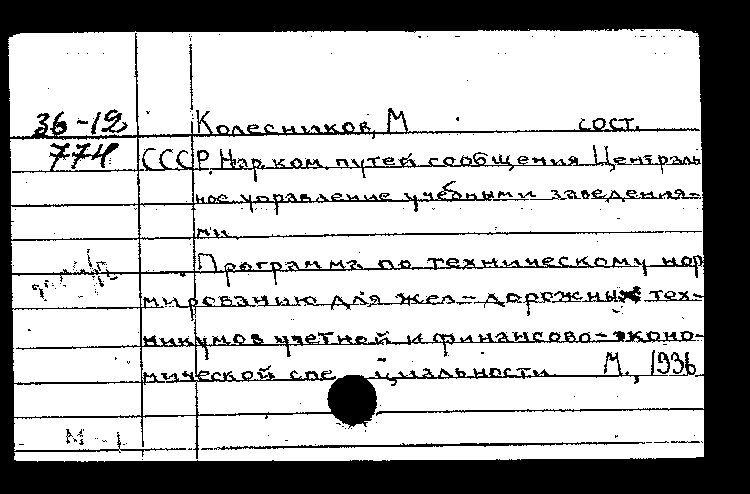 36-12 Колесников, М сост.
774 СССР. Нар. ком. путей сообщения Централь
ное управление учебными заведения-
ми.
Программа по техническому нор
мированию для жел-дорожных тех-
никумов учетной и финансово-эконо-
мической спе циальности М., 1936
М - 1